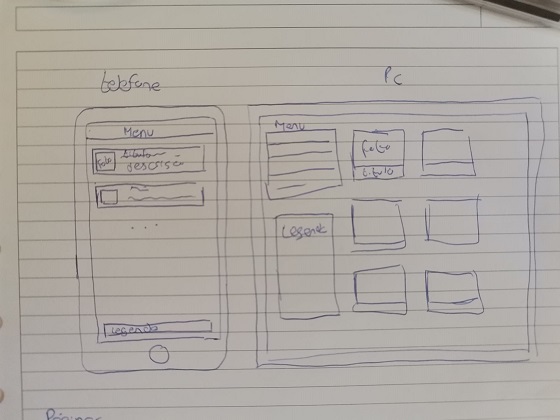 telefone
Pc
Menu
foto
titulo
descrição
...
legenda
Menu
foto
titulo
Legend
Páginas